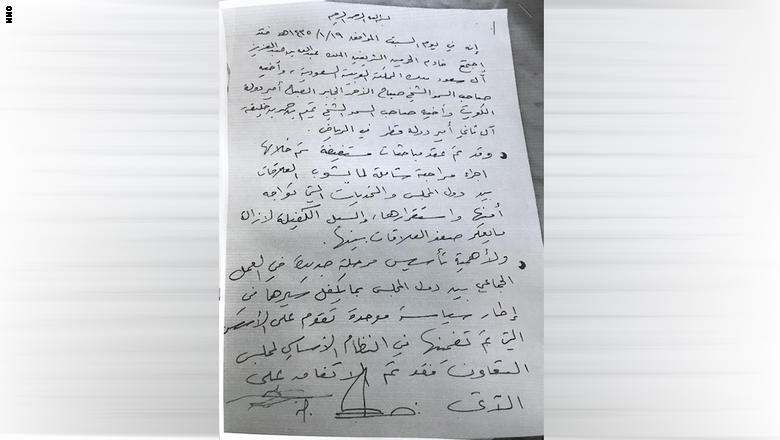 بسم الله الرحمن الرحيم
إنه في يوم السبت الموافق ١٤٣٥/١/١٩هـ فقد
اجتمع خادم الحرمين الشريفين الملك عبدالله بن عبدالعزيز
آل سعود ملك المملكة العربية السعودية، وأخيه
صاحب السمو الشيخ صباح الأحمد الجابر الصباح أمير دولة
الكويت وأخيه صاحب السمو الشيخ تميم بن حمد بن خليفة
آل ثاني أمير دولة قطر في الرياض.
وقد تم عقد مباحثات مستفيضة تم خلالها
اجراء مراجعة شاملة لما يشوب العلاقات
بين دول المجلس والتحديات التي تواجه
أمنها واستقرارها، والسبل الكفيلة لازالة
ما يعكر صفو العلاقات بينها.
ولأهمية تأسيس مرحلة جديدة في العمل
الجماعي بين دول المجلس بما يكفل سيرها في
إطار سياسة موحدة تقوم على الأسس
التي تم تضمينها في النظام الأساسي لمجلس
التعاون فقد تم الاتفاق على
الآتي:
CNN